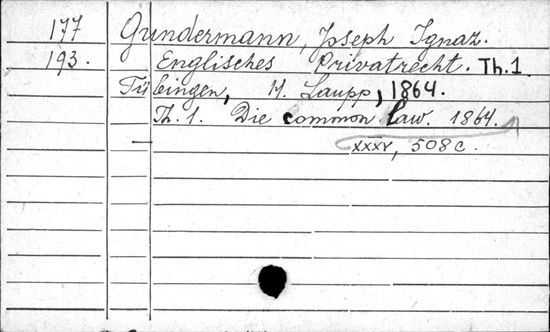 177 Gundermann, Joseph Ignaz.
193. Englisches Privatrecht. Th.1.
Tübingen, H. Laupp, 1864.
Th. 1. Die common law. 1864.
XXXV, 508 c.